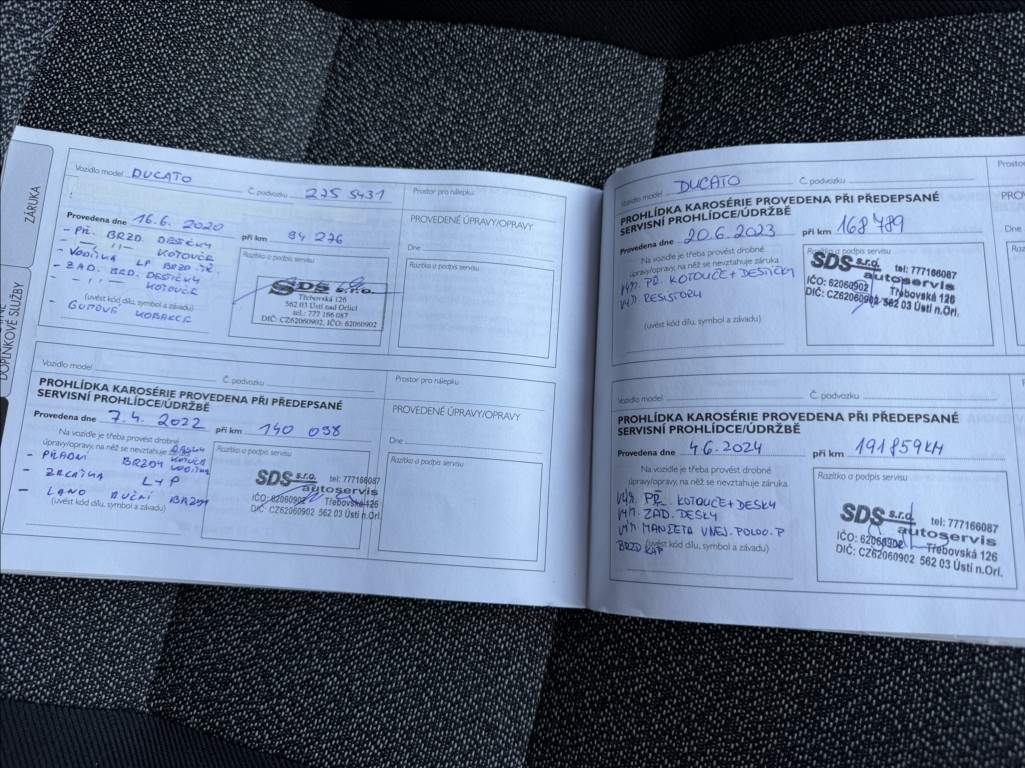 ZÁRUKA
DOPLŇKOVÉ SLUŽBY
Vozidlo model DUCATO Č. podvozku 275 5431
Provedena dne 16.6. 2020 při km 94 276
- PŘ. BRZD. DESTIČKY
- —〃— KOTOUČE
- VODÍTKA LP BRZD. TŘ.
- ZAD. BRD. DESTIČKY
- —〃— KOTOUČE
(uvést kód dílu, symbol a závadu)
- GUMOVÉ KOBERCE
Razítko a podpis servisu
SDS s.r.o.
Třebovská 126
562 03 Ústí nad Orlicí
tel.: 777 166 087
DIČ: CZ62060902, IČO: 62060902
Prostor pro nálepku
PROVEDENÉ ÚPRAVY/OPRAVY
Dne
Razítko a podpis servisu
Vozidlo model Č. podvozku
PROHLÍDKA KAROSÉRIE PROVEDENA PŘI PŘEDEPSANÉ
SERVISNÍ PROHLÍDCE/ÚDRŽBĚ
Provedena dne 7.4. 2022 při km 140 038
Na vozidle je třeba provést drobné
úpravy/opravy, na něž se nevztahuje záruka
- PŘEDNÍ BRZDY DESKY KOTOUČE VODÍTKA
- ZRCÁTKA L+P
- LANO RUČNÍ BRZDY
(uvést kód dílu, symbol a závadu)
Razítko a podpis servisu
SDS s.r.o. tel: 777166087
autoservis
IČO: 62060902 Třebovská 126
DIČ: CZ62060902 562 03 Ústí n.Orl.
Prostor pro nálepku
PROVEDENÉ ÚPRAVY/OPRAVY
Dne
Razítko a podpis servisu
Vozidlo model DUCATO Č. podvozku
PROHLÍDKA KAROSÉRIE PROVEDENA PŘI PŘEDEPSANÉ
SERVISNÍ PROHLÍDCE/ÚDRŽBĚ
Provedena dne 20.6.2023 při km 168 789
Na vozidle je třeba provést drobné
úpravy/opravy, na něž se nevztahuje záruka
VÝM. PŘ. KOTOUČE + DESTIČKY
VÝM. RESISTORY
(uvést kód dílu, symbol a závadu)
Razítko a podpis servisu
SDS s.r.o. tel: 777166087
autoservis
IČO: 62060902 Třebovská 126
DIČ: CZ62060902 562 03 Ústí n.Orl.
Prosto
PRO
Dne
Vozidlo model Č. podvozku
PROHLÍDKA KAROSÉRIE PROVEDENA PŘI PŘEDEPSANÉ
SERVISNÍ PROHLÍDCE/ÚDRŽBĚ
Provedena dne 4.6.2024 při km 191 859 KM
Na vozidle je třeba provést drobné
úpravy/opravy, na něž se nevztahuje záruka
VÝM. PŘ. KOTOUČE + DESKY
VÝM. ZAD. DESKY
VÝM MANŽETA VNEJ. POLOO. P
BRZD KAP
(uvést kód dílu, symbol a závadu)
Razítko a podpis servisu
SDS s.r.o. tel: 777166087
autoservis
IČO: 62060902 Třebovská 126
DIČ: CZ62060902 562 03 Ústí n.Orl.